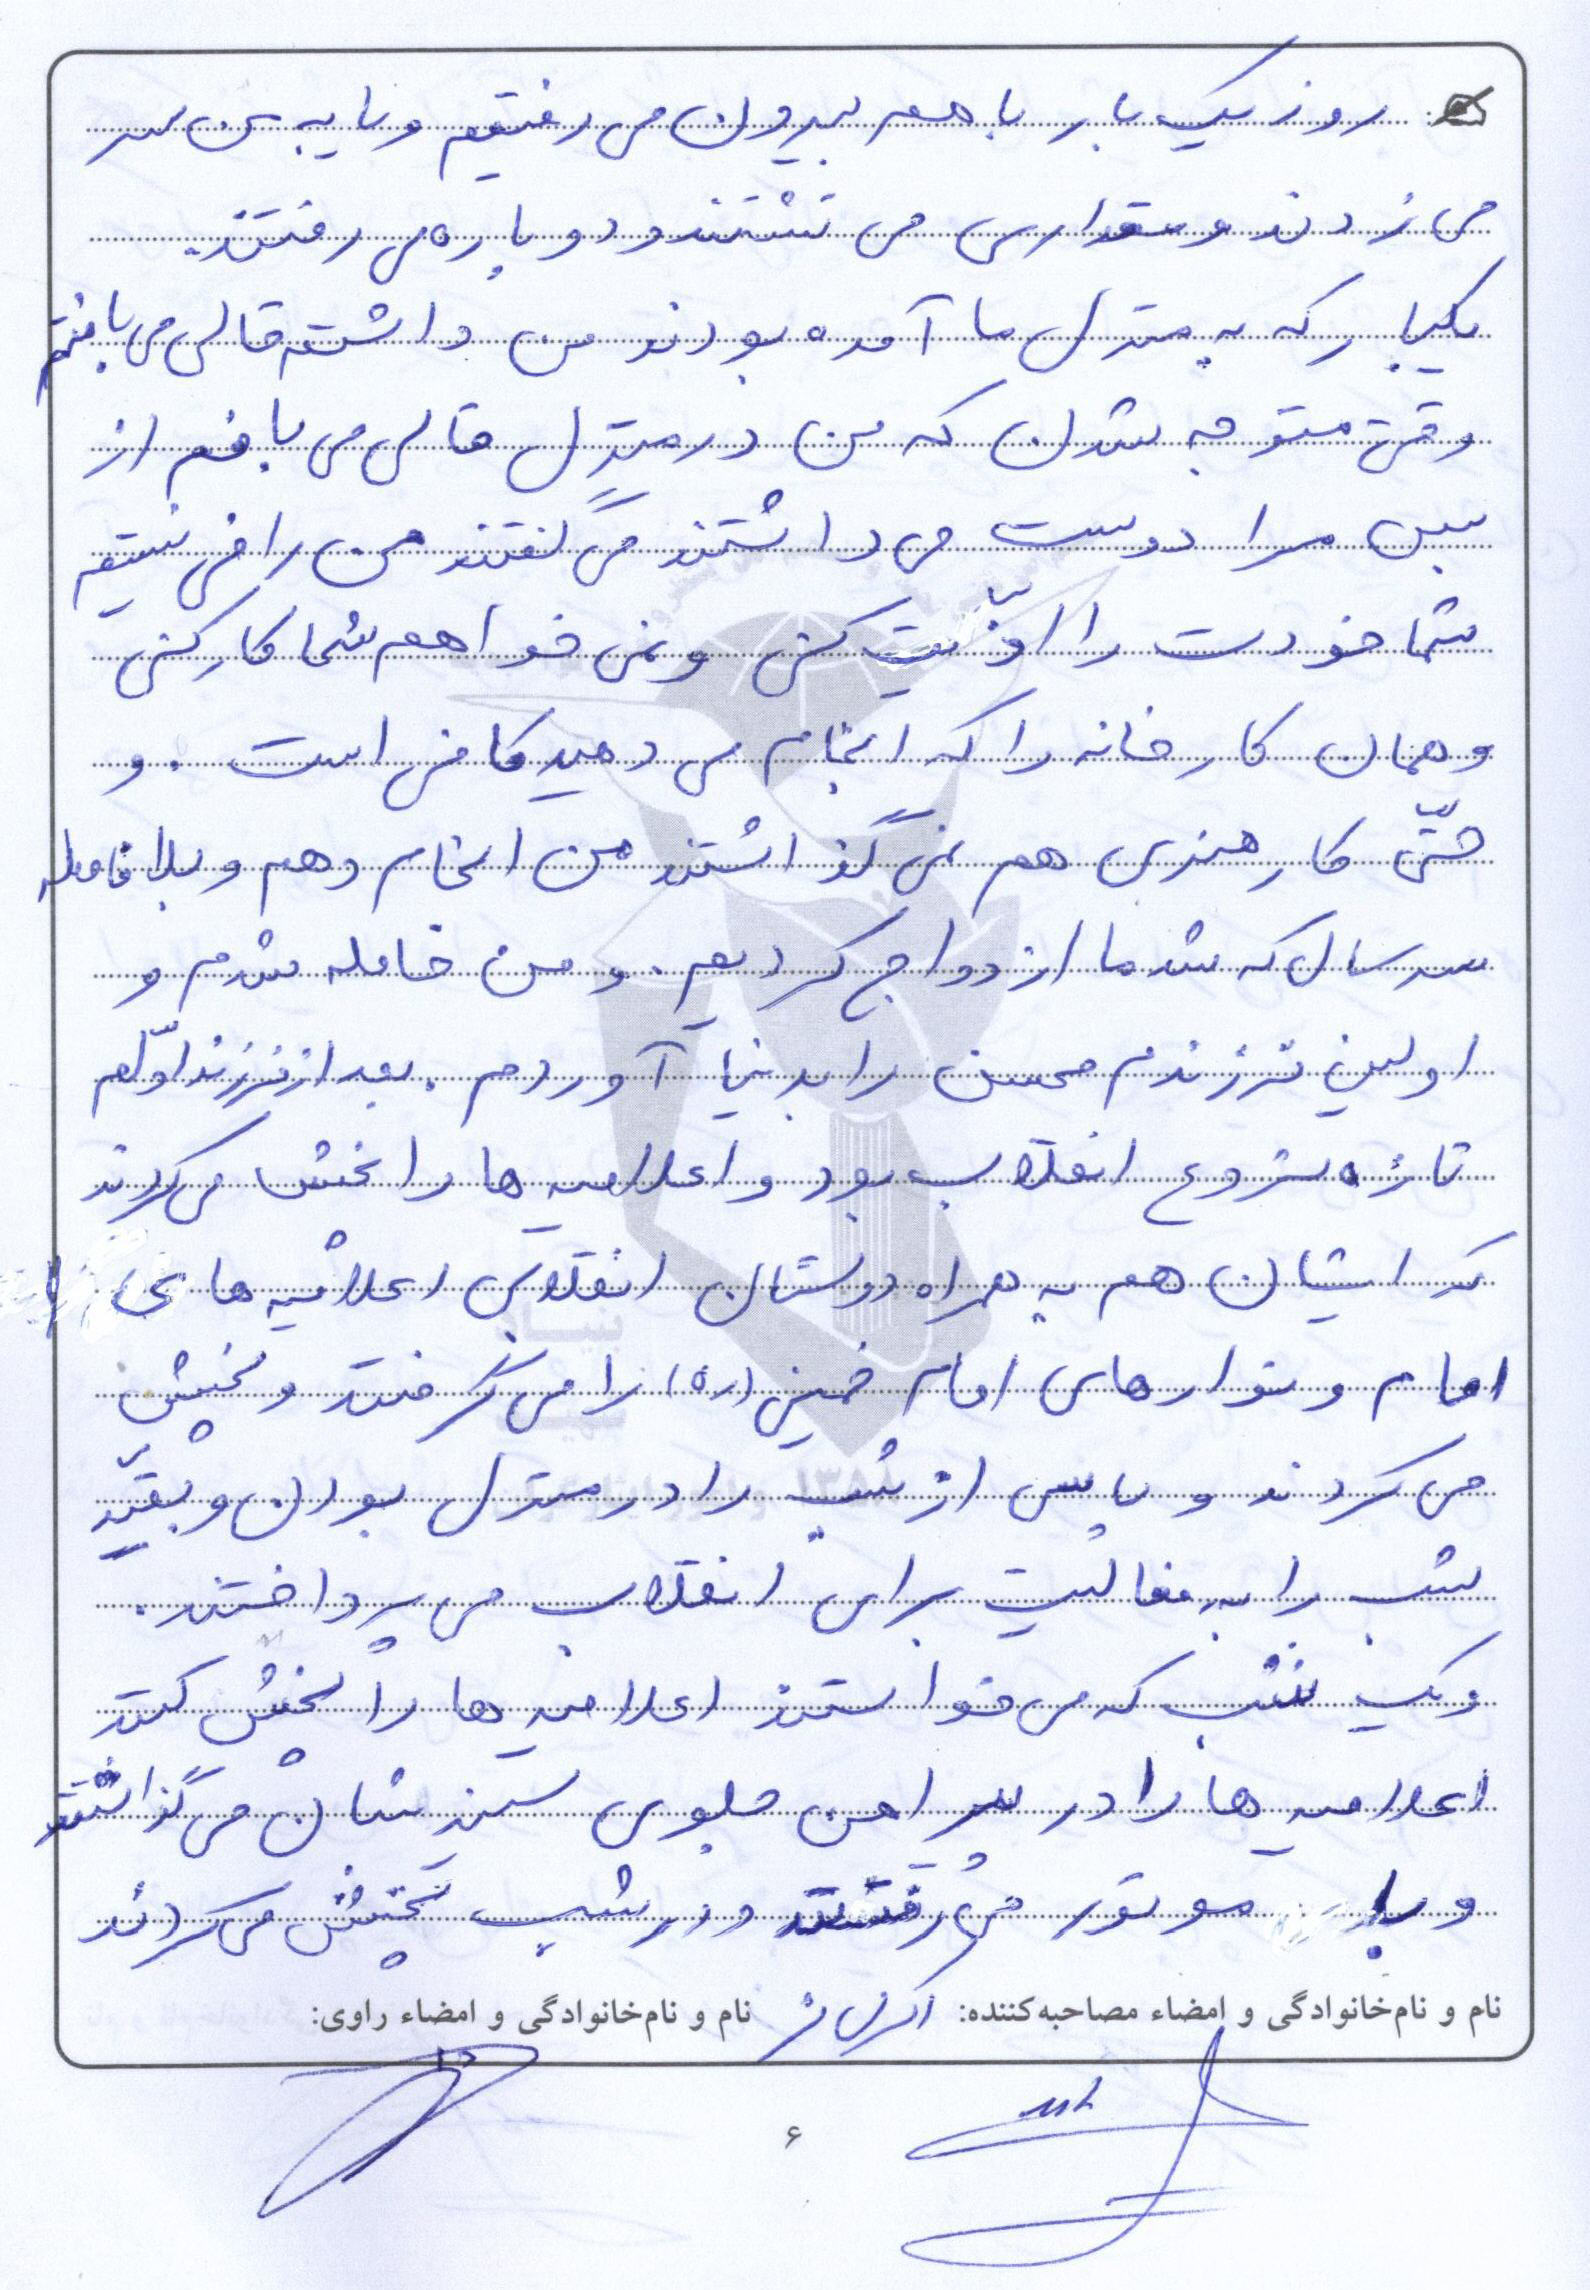 روز یک بار با هم بیرون می رفتیم و یا به من سر
می زدند و مقداری می نشتند و دوباره می رفتند.
یکبار که به منزل ما آمده بودند من داشتم قالی می بافتم
وقتی متوجه شدن که من در منزل قالی می بافم از
بس مرا دوست می داشتند می گفتند من راضی نیستم
شما خودت را اذّیت کنی و نمی خواهم شما کار کنی
و همان کار خانه را که انجام می دهید کافی است . و
حتّی کار هنری هم نمی گذاشتند من انجام دهم و بلافاصله
سر سال که شد ما ازدواج کردیم . و من حامله شدم و
اولین فرزندم محسن را بدنیا آوردم . بعد از فرزند اوّلم
تازه شروع انقلاب بود و اعلامیه ها را پخش می کردند
که ایشان هم به همراه دوستان انقلابی اعلامیه های
امام و نوارهای امام خمینی (ره) را می گرفتند و پخش
می کردند و پاسی از شب را در منزل بودن و بقیّه
شب را به فعالیت برای انقلاب می پرداختند .
و یک شب که می خواستند اعلامیه ها را پخش کنند
اعلامیه ها را در پیراهن جلوی سینه شان می گذاشتند
و با موتور می رفتند و در شب پخش می کردند
نام و نام‌خانوادگی و امضاء مصاحبه‌کننده: نام و نام‌خانوادگی و امضاء راوی:
۶